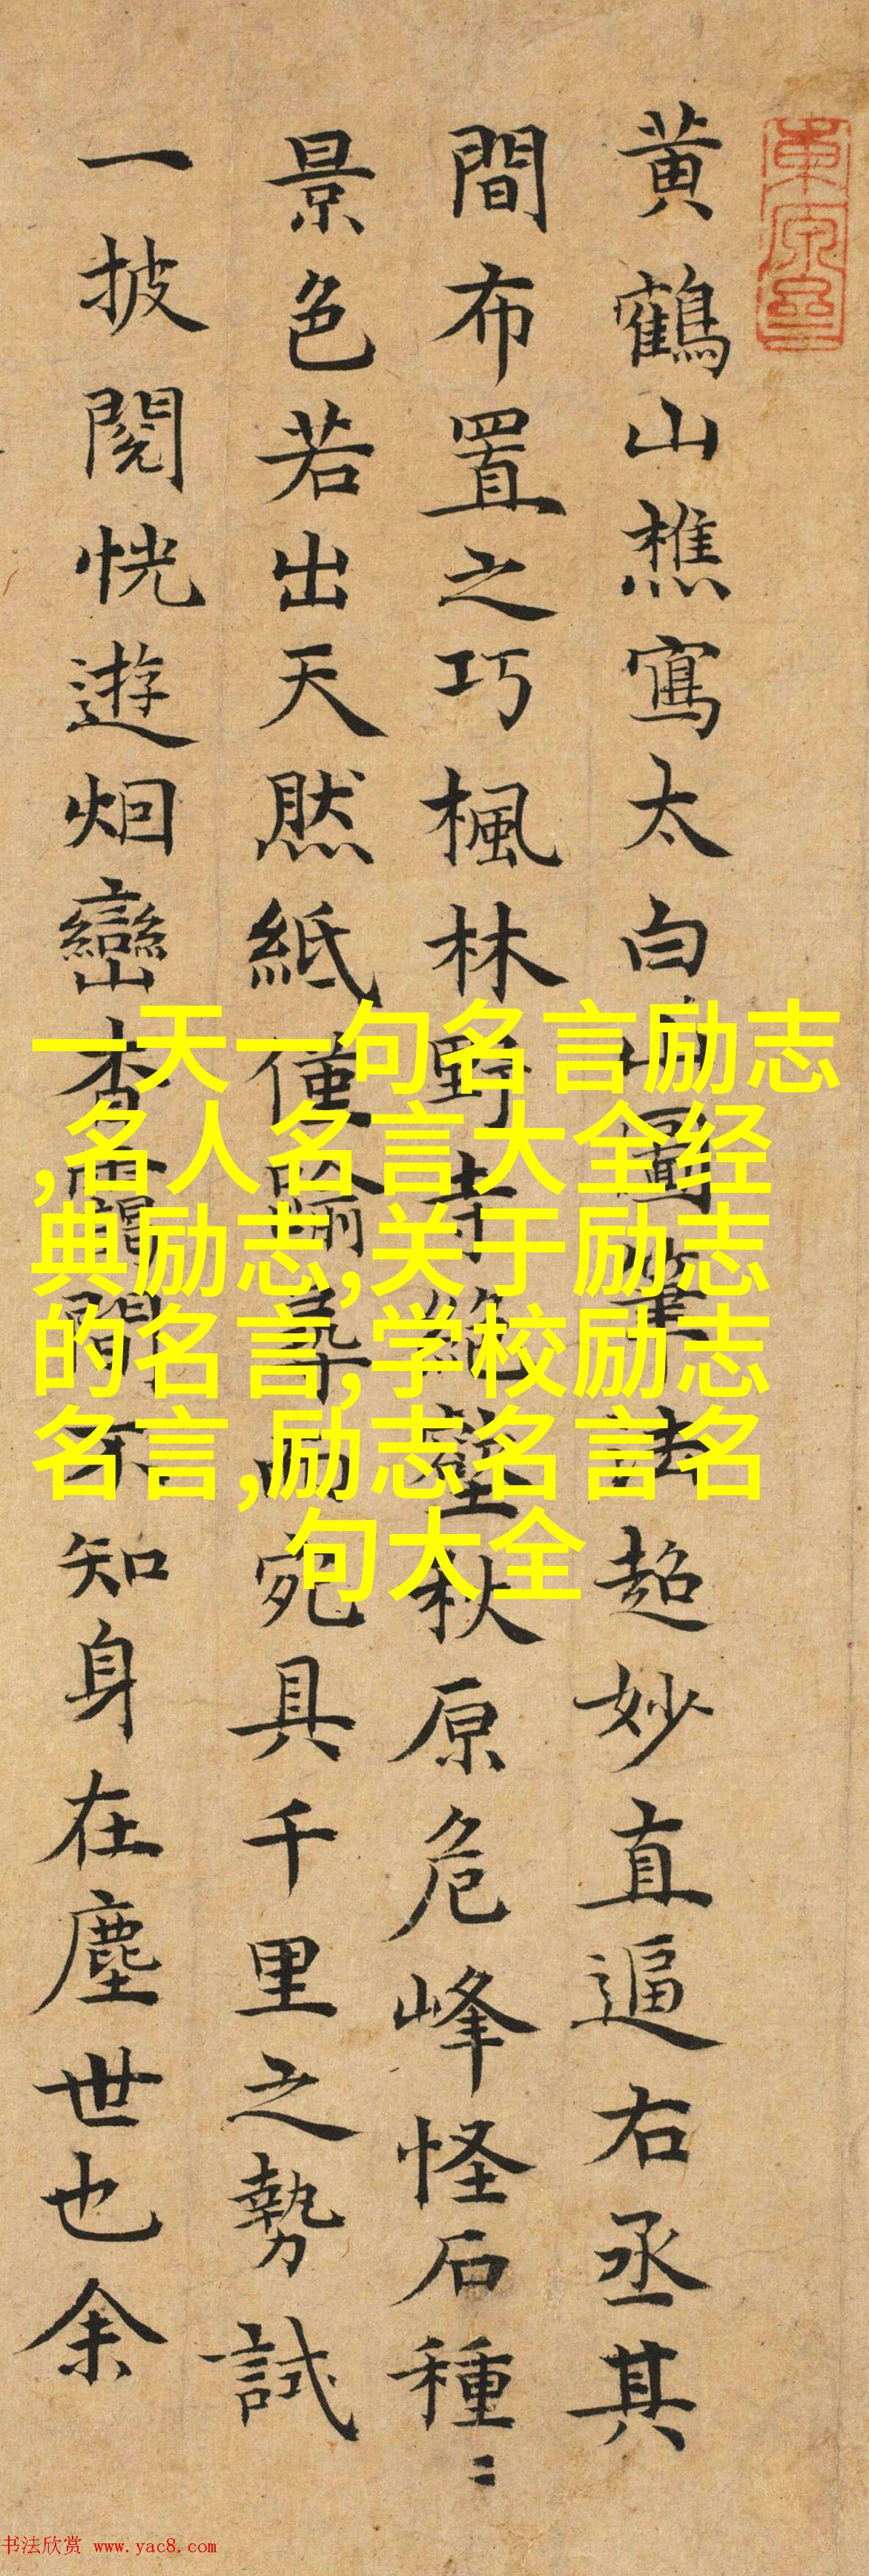 黄鶴山樵寫太白山圖筆法超妙直逼右丞其
間布置之巧楓林野寺絶壑秋原危峰怪石種〻
景色若出天然紙僅踰尋而宛具千里之勢試
一披閱恍遊烟巒杳靄間不知身在塵世也余
一天一句名言励志
,名人名言大全经
典励志,关于励志
的名言,学校励志
名言,励志名言名
句大全
书法欣赏 www.yac8.com